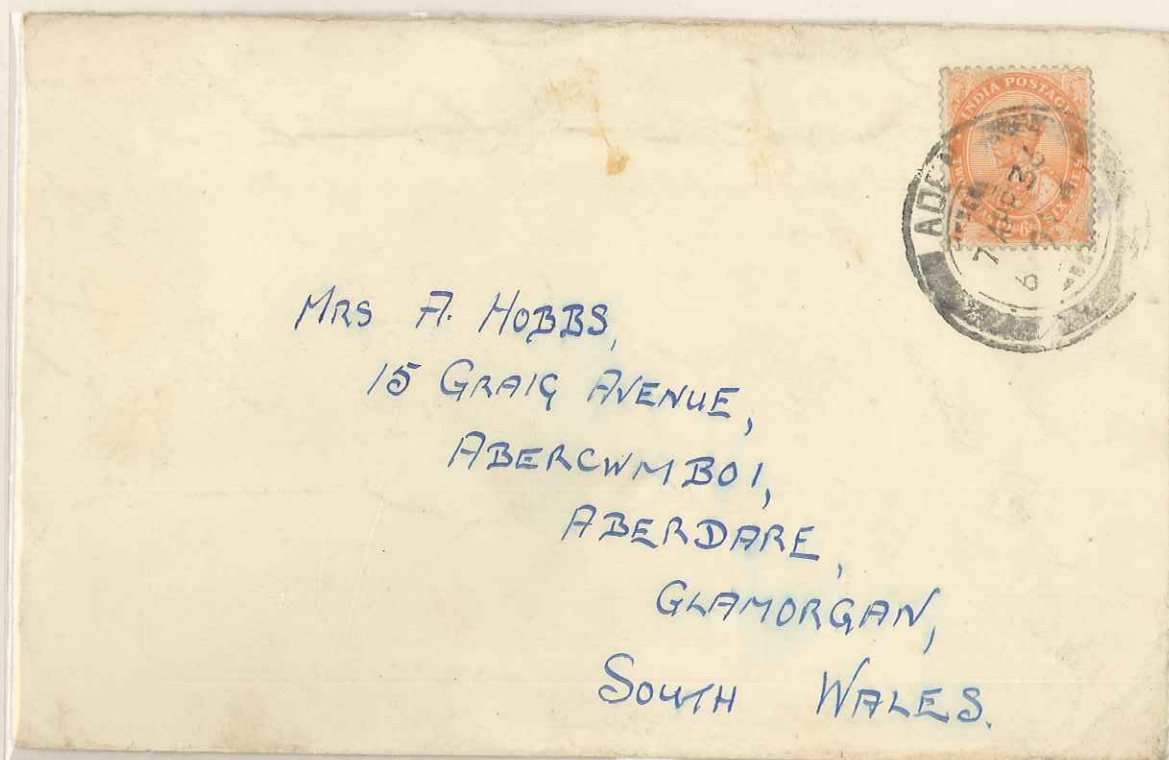 INDIA POSTAGE
ADEN
7 APR 36
MRS A. HOBBS,
15 GRAIG AVENUE,
ABERCWMBOI,
ABERDARE,
GLAMORGAN,
SOUTH WALES.